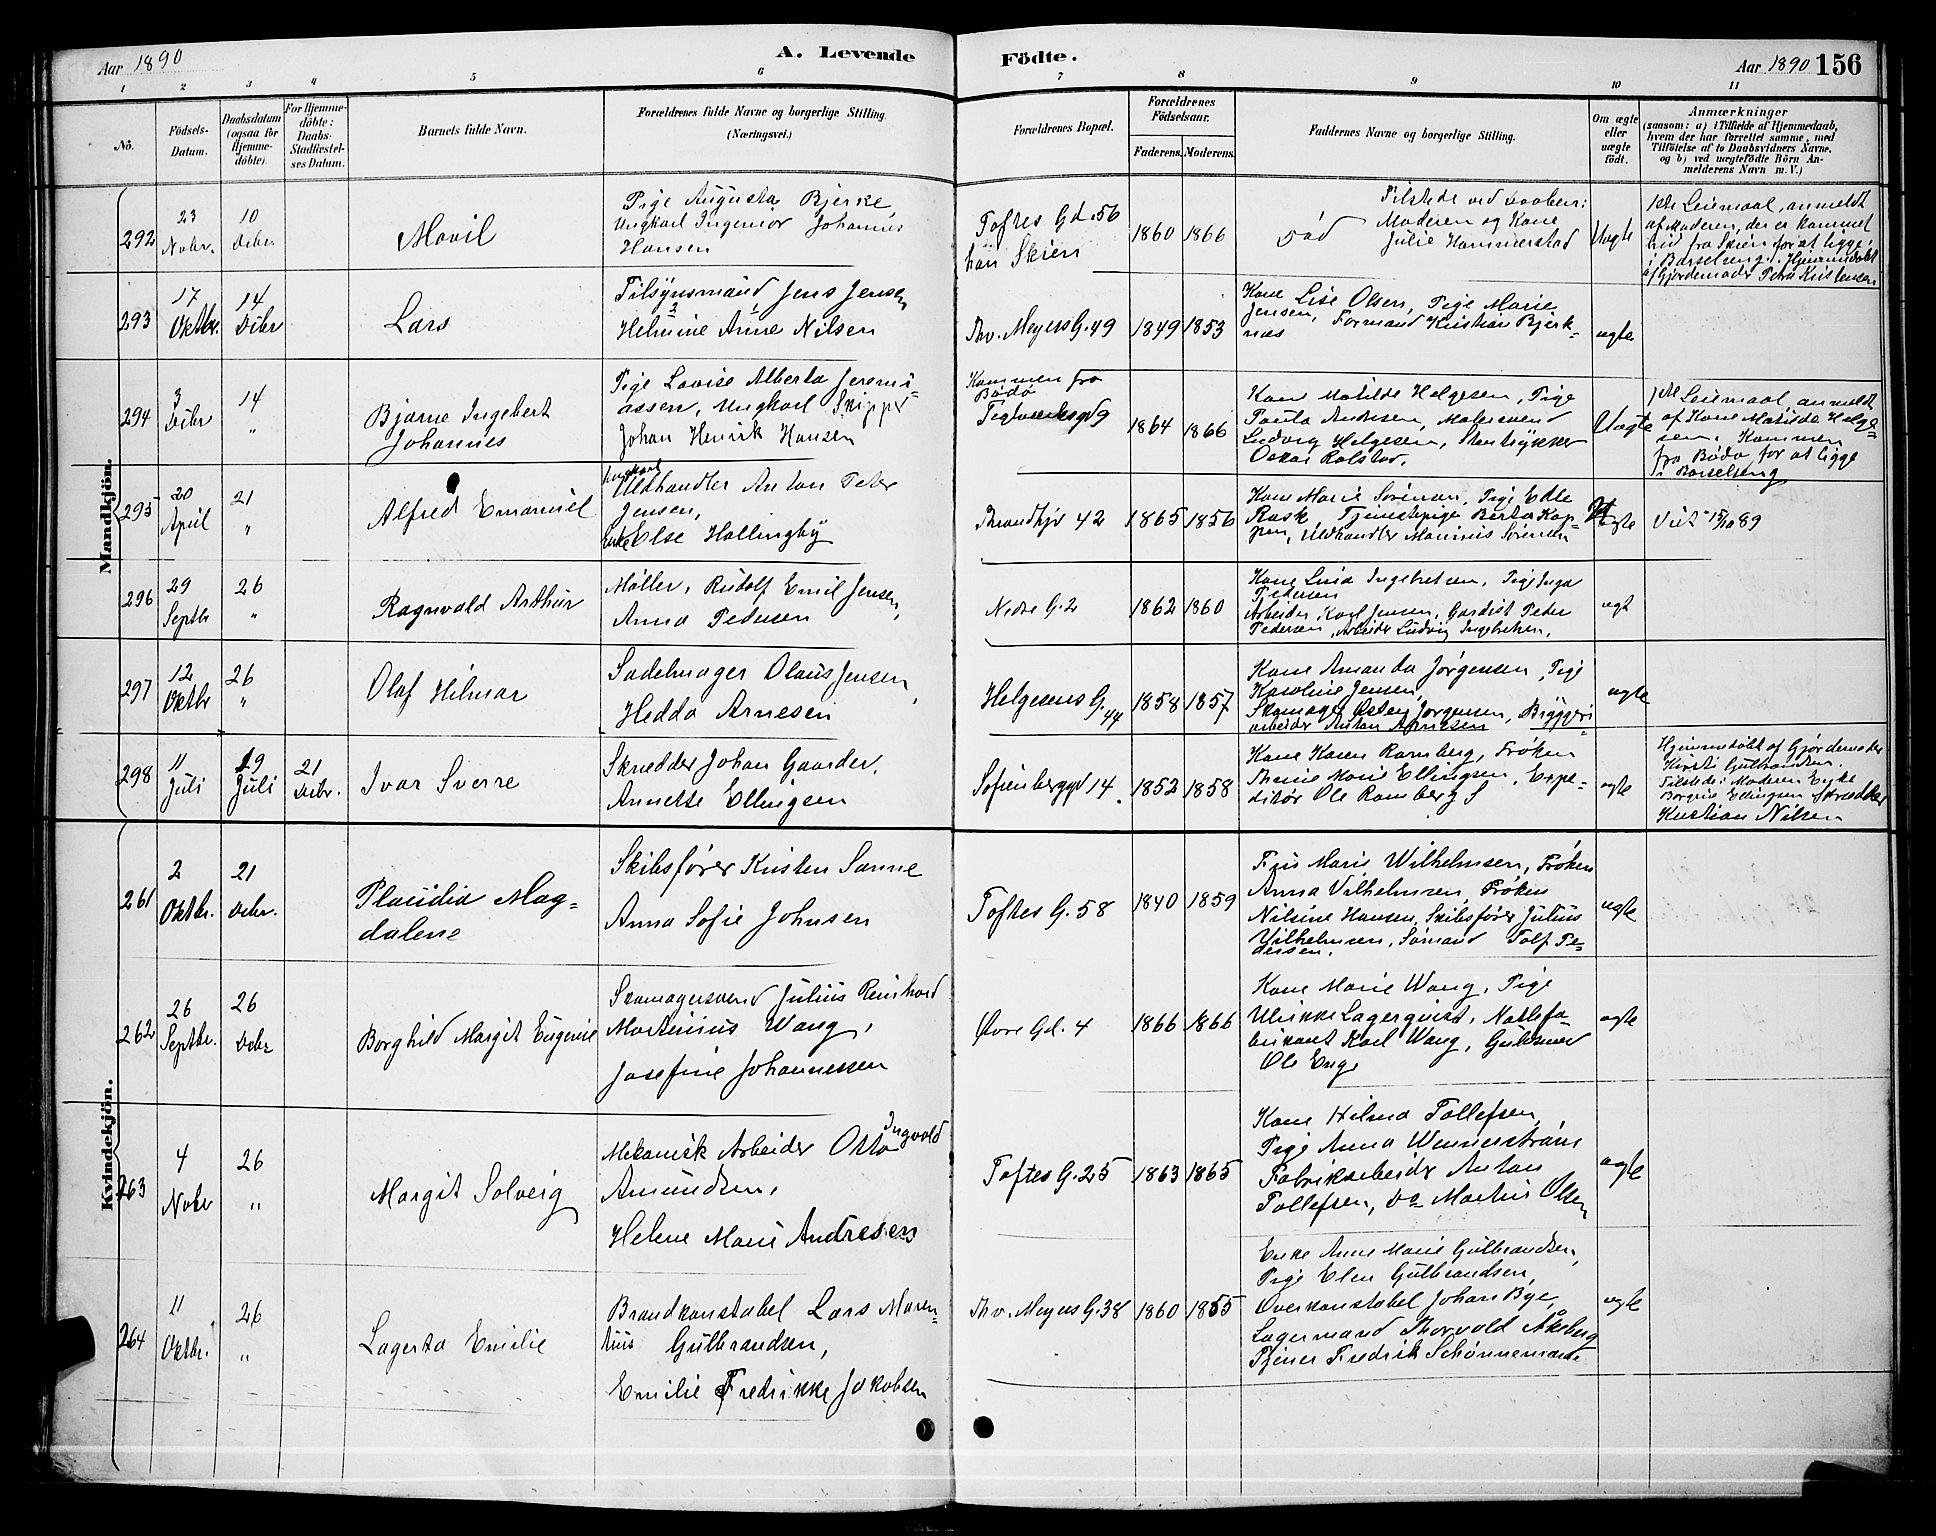 Aar 1890
A. Levende
Födte.
Aar 1890 156
1 2 3 4 5 6 7 8 9 10 11
No.
Födsels-Datum.
Daabsdatum (ogsaa for Hjemme-döbte).
For Hjemme-döbte: Daabs-Stadfæstel-ses Datum.
Barnets fulde Navn.
Forældrenes fulde Navne og borgerlige Stilling. (Næringsvei.)
Forældrenes Bopæl.
Forældrenes Födselsaar.
Faderens. Moderens.
Faddernes Navne og borgerlige Stilling.
Om ægte eller uægte födt.
Anmærkninger
(saasom: a) i Tilfælde af Hjemmedaab,
hvem der har forrettet samme, med
Tilföielse af to Daabsvidners Navne,
og b) ved uægtefödte Börn An-
melderens Navn m. V.)
Mandkjön.
292
23 Novbr.
10 Debr
Movil
Pige Augusta Bjerke
Ungkarl Ingeniör Johannes
Hansen
Toftes Gd. 56
Skien
1860 1866
Död
Tilstede ved Daaben:
Moderen og Kone
Julie Hammerstad
Uægte
1ste Leiemaal, anmeldt
af Moderen, der er kommet
hid fra Skien for at ligge
i Barselseng. Hjemmedöbt
af Gjordemoder Petra Kristensen
293
17 Oktbr.
14 Debr
Lars
Tilsynsmand Jens Jensen
Helmine Anne Nilsen
Thv. Meyers G. 49
1849 1853
Kone Lise Olsen, Pige Marie
Jensen, Formand Kristian Bjerk-
næs
ægte
294
3 Debr
14 "
Bjarne Ingebert
Johannes
Pige Lovise Alberta Jeremi-
assen, Ungkarl Skipper
Johan Henrik Hansen
Kommen fra
Bodö
Teglverksgd 9
1864 1866
Kone Matilde Helgesen, Pige
Paula Andresen, Malersvend
Ludvig Helgesen, Stentrykker
Oskar Rolstad.
Uægte
1ste Leiemaal anmeldt
af Kone Matilde Helge-
sen. Kommen
fra Bodö for at ligge
i Barselseng
295
20 April
21 "
Alfred Emanuel
Ungkarl
Vedhandler Anton Peter
Jensen,
Enke Else Hollingby
Brandtgd 42
1865 1856
Kone Marie Sörensen, Pige Edle
Rask Tjenestepige Berta Kop-
pen, Vedhandler Marinus Sörensen
Uægte
Viet 15/10 89
296
29 Septbr
26 "
Ragnvald Arthur
Möller, Rudolf Emil Jensen,
Anna Pedersen
Nedre G. 2
1862 1860
Kone Lina Ingebretsen, Pige Inga
Pedersen
Arbeider, Karl Jensen, Gardist Peter
Pedersen, Arbeider Ludvig Ingebretsen,
ægt
297
12 Oktbr
26 "
Olaf Hilmar
Sadelmager Olaus Jensen,
Hedda Arnesen
Helgesens G. 44
1858 1857
Kone Amanda Jörgensen, Pige
Karoline Jensen,
Skomager Östen Jörgensen, Bryggeri
arbeider Anton Arnesen
ægte
298
11 Juli
19 Juli
21 Debr.
Ivar Sverre
Skrædder Johan Gaarder,
Annette Ellingsen
Sofienberggd 14
1852 1858
Kone Karen Ramberg, Fröken
Marie Ellingsen, Expe-
ditör Ole Ramberg S
ægte
Hjemmedöbt af Gjordemoder
Kirsti Gulbrandsen.
Tilstede: Moderen Enke
Ellingsen Skrædder
Kristian Nilsen
Kvindekjön.
261
2 Oktbr.
21 Debr.
Placidia Mag-
dalene
Skibsförer Kristen Sanne
Anna Sofie Johnsen
Toftes G. 58
1840 1859
Frue Marie Wilhelmsen, Fröken
Anna Vilhelmsen, Fröken
Nilsine Hansen, Skibsförer Julius
Vilhelmsen, Sömand Tolf Pe-
dersen.
ægte
262
26 Septbr.
26 Debr
Borghild Margit Eugenie
Skomagersvend Julius Reinhard
Martinius Wang,
Josefine Johannessen
Övre Gd. 4
1866 1866
Kone Marie Wang, Pige
Ulrikke Lagerquist,
Karl Wang, Gulsmed
Ole Enge
ægte
263
4 Novbr
26 "
Margit Solveig
Mekanisk Arbeider Otto Ingvald
Amundsen,
Helene Marie Andresen
Toftes G. 25
1863 1865
Kone Hilma Tollefsen,
Pige Anna Wennerström
Fabriksarbeider Anton
Tollefsen, do Martin Olsen
ægte
264
11 Oktbr.
26 "
Lagerta Emilie
Brandkonstabel Lars Maren-
tius Gulbrandsen,
Emilie Fredrikke Jakobsen
Thv. Meyers G. 38
1860 1855
Enke Anne Marie Gulbrandsen,
Pige Elen Gulbrandsen,
Overkonstabel Johan Bye,
Lagermand Thorvald Akeberg
Tjener Fredrik Schönnemann
ægte